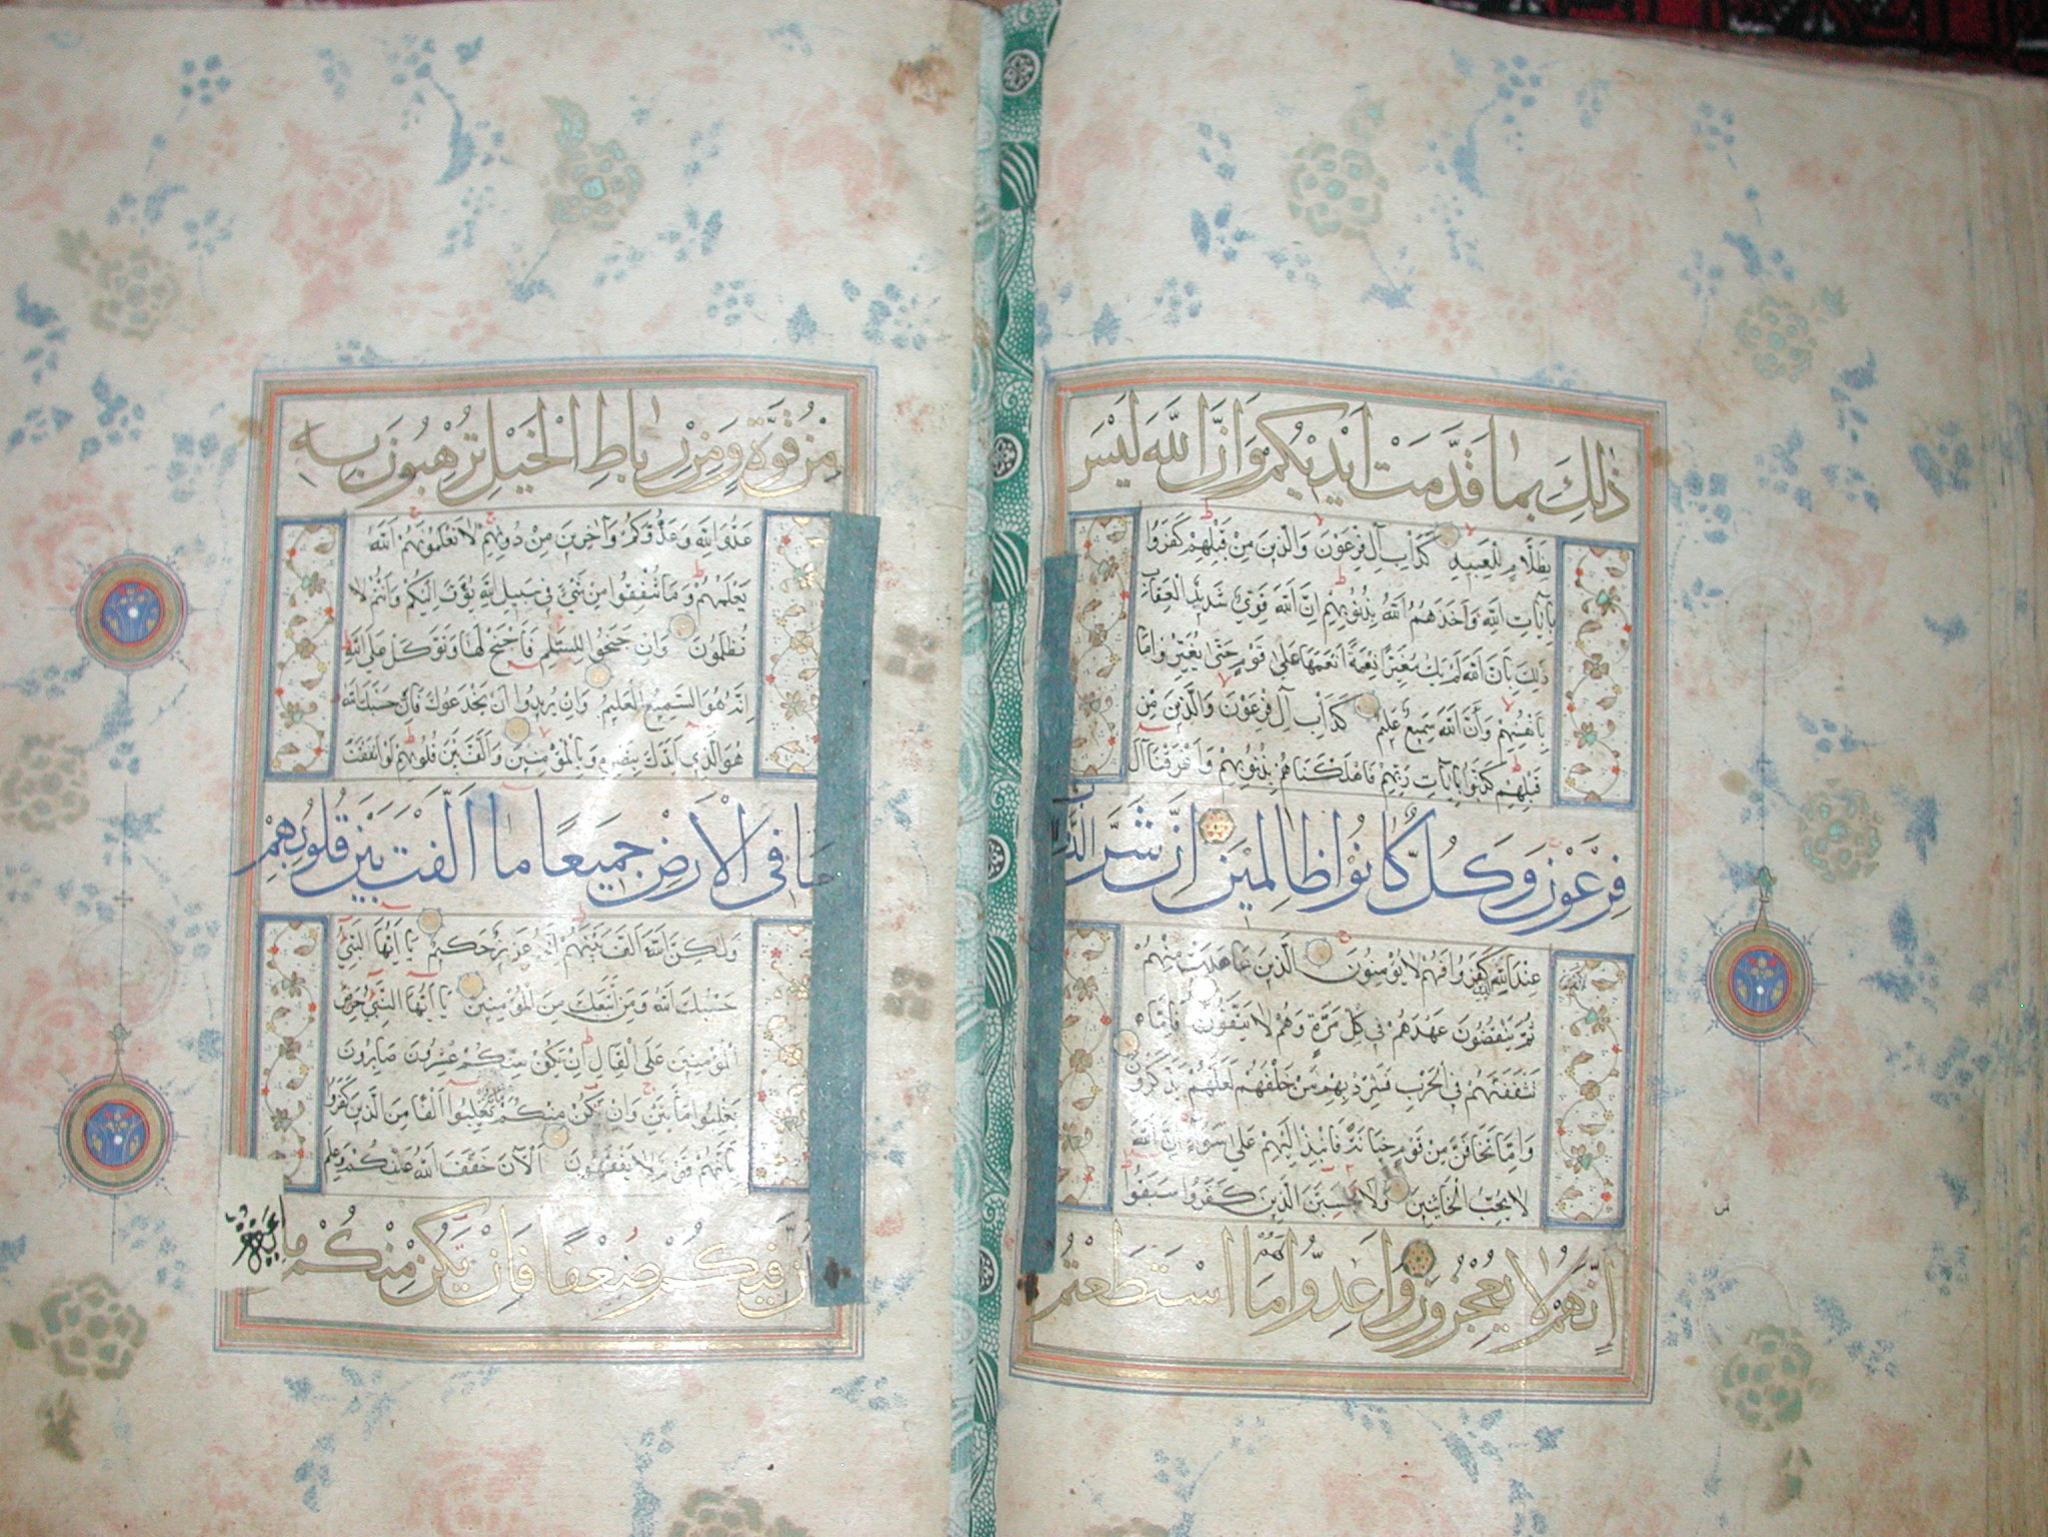 ذٰلِكَ بِمَا قَدَّمَتْ اَيْدِيكُمْ وَاَنَّ اللّٰهَ لَيْسَ
بِظَلَّامٍ لِلْعَبِيدِ كَدَاْبِ آلِ فِرْعَوْنَ وَالَّذِينَ مِنْ قَبْلِهِمْ كَفَرُوا
بِآيَاتِ اللّٰهِ وَاَخَذَهُمُ اللّٰهُ بِذُنُوبِهِمْ اِنَّ اللّٰهَ قَوِيٌّ شَدِيدُ الْعِقَابِ
ذٰلِكَ بِاَنَّ اللّٰهَ لَمْ يَكُ مُغَيِّرًا نِعْمَةً اَنْعَمَهَا عَلٰى قَوْمٍ حَتّٰى يُغَيِّرُوا مَا
بِاَنْفُسِهِمْ وَاَنَّ اللّٰهَ سَمِيعٌ عَلِيمٌ كَدَاْبِ آلِ فِرْعَوْنَ وَالَّذِينَ مِنْ
قَبْلِهِمْ كَذَّبُوا بِآيَاتِ رَبِّهِمْ فَاَهْلَكْنَاهُمْ بِذُنُوبِهِمْ وَاَغْرَقْنَا آلَ
فِرْعَوْنَ وَكُلٌّ كَانُوا ظَالِمِينَ اِنَّ شَرَّ الدَّوَابِّ
عِنْدَ اللّٰهِ كَفَرُوا فَهُمْ لَا يُؤْمِنُونَ الَّذِينَ عَاهَدْتَ مِنْهُمْ
ثُمَّ يَنْقُضُونَ عَهْدَهُمْ فِي كُلِّ مَرَّةٍ وَهُمْ لَا يَتَّقُونَ فَاِمَّا
تَثْقَفَنَّهُمْ فِي الْحَرْبِ فَشَرِّدْ بِهِمْ مَنْ خَلْفَهُمْ لَعَلَّهُمْ يَذَّكَّرُونَ
وَاِمَّا تَخَافَنَّ مِنْ قَوْمٍ خِيَانَةً فَانْبِذْ اِلَيْهِمْ عَلٰى سَوَاءٍ اِنَّ اللّٰهَ
لَا يُحِبُّ الْخَائِنِينَ وَلَا تَحْسَبَنَّ الَّذِينَ كَفَرُوا سَبَقُوا
اِنَّهُمْ لَا يُعْجِزُونَ وَاَعِدُّوا لَهُمْ مَا اسْتَطَعْتُمْ
مِنْ قُوَّةٍ وَمِنْ رِبَاطِ الْخَيْلِ تُرْهِبُونَ بِهِ
عَدُوَّ اللّٰهِ وَعَدُوَّكُمْ وَآخَرِينَ مِنْ دُونِهِمْ لَا تَعْلَمُونَهُمْ اَللّٰهُ
يَعْلَمُهُمْ وَمَا تُنْفِقُوا مِنْ شَيْءٍ فِي سَبِيلِ اللّٰهِ يُوَفَّ اِلَيْكُمْ وَاَنْتُمْ لَا
تُظْلَمُونَ وَاِنْ جَنَحُوا لِلسَّلْمِ فَاجْنَحْ لَهَا وَتَوَكَّلْ عَلَى اللّٰهِ
اِنَّهُ هُوَ السَّمِيعُ الْعَلِيمُ وَاِنْ يُرِيدُوا اَنْ يَخْدَعُوكَ فَاِنَّ حَسْبَكَ اللّٰهُ
هُوَ الَّذِي اَيَّدَكَ بِنَصْرِهِ وَبِالْمُؤْمِنِينَ وَاَلَّفَ بَيْنَ قُلُوبِهِمْ لَوْ اَنْفَقْتَ
مَا فِي الْاَرْضِ جَمِيعًا مَا اَلَّفْتَ بَيْنَ قُلُوبِهِمْ
وَلٰكِنَّ اللّٰهَ اَلَّفَ بَيْنَهُمْ اِنَّهُ عَزِيزٌ حَكِيمٌ يَا اَيُّهَا النَّبِيُّ
حَسْبُكَ اللّٰهُ وَمَنِ اتَّبَعَكَ مِنَ الْمُؤْمِنِينَ يَا اَيُّهَا النَّبِيُّ حَرِّضِ
الْمُؤْمِنِينَ عَلَى الْقِتَالِ اِنْ يَكُنْ مِنْكُمْ عِشْرُونَ صَابِرُونَ
يَغْلِبُوا مِاَتَيْنِ وَاِنْ يَكُنْ مِنْكُمْ مِائَةٌ يَغْلِبُوا اَلْفًا مِنَ الَّذِينَ كَفَرُوا
بِاَنَّهُمْ قَوْمٌ لَا يَفْقَهُونَ اَلْآنَ خَفَّفَ اللّٰهُ عَنْكُمْ وَعَلِمَ
اَنَّ فِيكُمْ ضَعْفًا فَاِنْ يَكُنْ مِنْكُمْ مِا